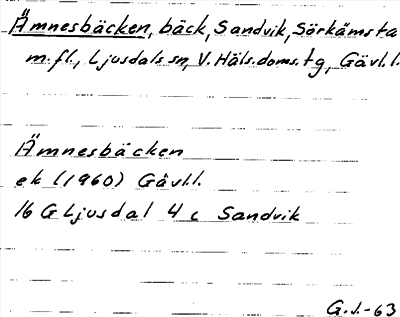 Ämnesbäcken, bäck, Sandvik, Sörkämsta
m.fl., Ljusdals sn, V. Häls. doms. tg, Gävl.l.
Ämnesbäcken
ek (1960) Gävl.l.
16 G Ljusdal 4 c Sandvik
G.J.-63